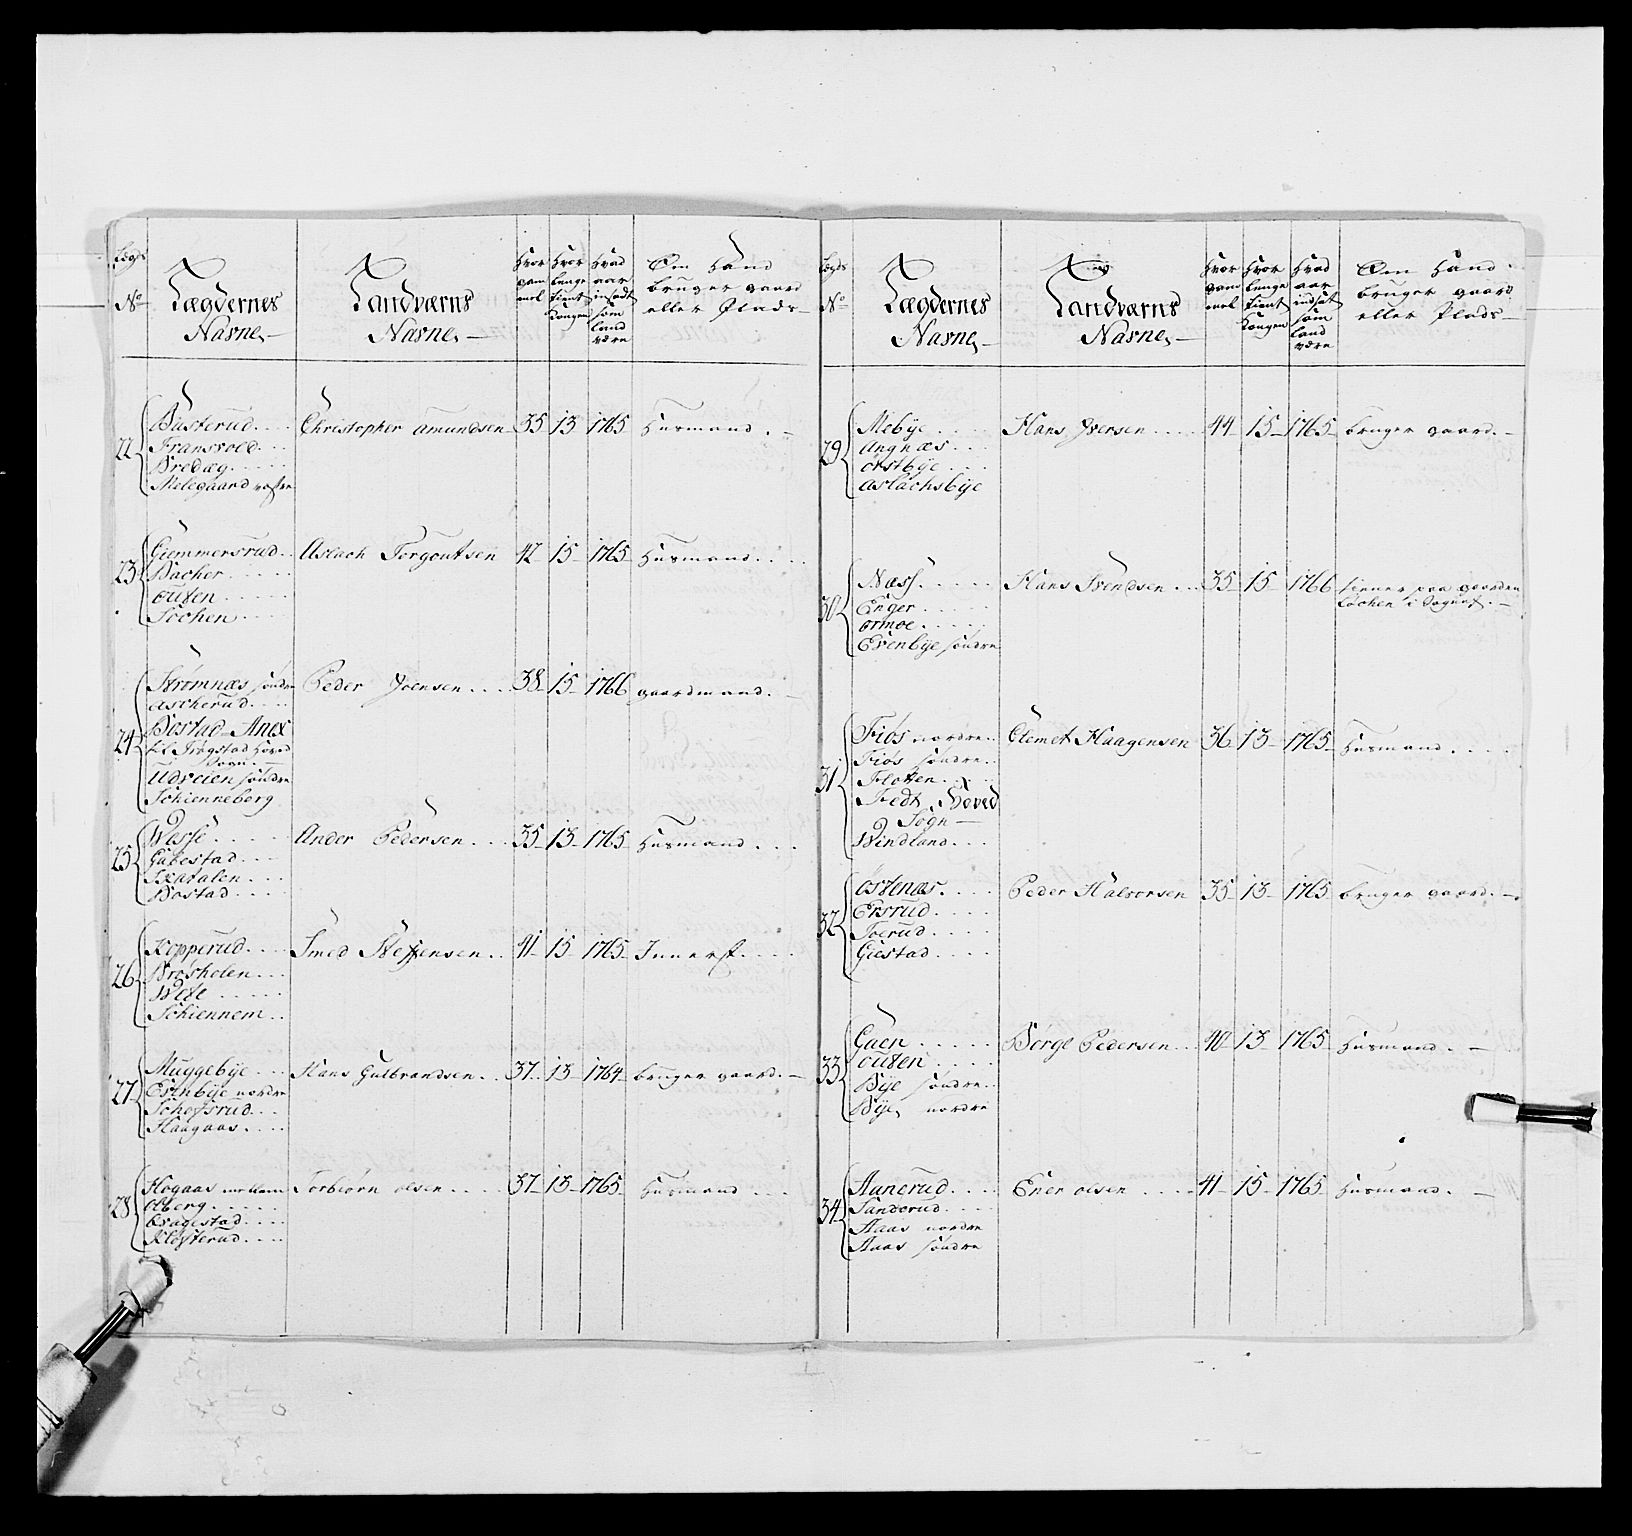 Lægd
No
Lægdernes
Nafne,
Landværns
Nafne,
Hvor
gam
mel
Hvor
lenge
tient
Kongen
Hvad
aar
indsadt
som
land
værn
Om Hand
bruger gaard
eller Plads
22
Busterud
Fransvold
Bredæg
Melegaard
Christopher Amundsen 35 13 1765 Husmand.
23
Giemmersrud
Bacher
outen
Sochen
Aslach Torgoutsen 42 15 1765 Husmand.
24
Strømnæs søndre
ascherud
Bostad Anex
til Trøgstad Hoved
Sogn
Udveien søndre
Schienneberg
Peder Joensen 38 15 1766 gaardmand.
25
Wesse
Gabestad
Skatalen
Bostad
Ander Pedersen 35 13 1765 Husmand
26
Kopperud
Brosholen
Schiennem
Smed Steffensen 41 15 1765 Innerst.
27
Muggebye
Evenbye nordre
Haagaas
Hans Gulbrandsen 37 13 1764 bruger gaard.
28
Høgaas mellem
olberg
Klosterud
Torbiørn olsen 37 13 1765 Husmand
Lægds
No
Lægdernes
Nafne,
Landværns
Nafne,
Hvor
gam
mel
Hvor
lenge
tient
Kongen
Hvad
aar
indsat
som
land
værn
Om Hand
bruger gaard
eller Plads
29
Mebye
Angnæs
ørstbye
aslachsbye
Hans Iversen 44 15 1765 bruger gaard.
30
Næss
Enger
ormoe
Evenbye søndre
Hans Svendsen 35 15 1766 tienner paa gaarden
Lochen i Sognet.
31
Fiøs nordre
Fiøs søndre
Flotten
Hoved
Sogn
Windland
Clemet Haagensen 36 13 1765 Husmand
32
østenæs
Ersrud
Toerud
Giestad
Peder Halvorsen 35 13 1765 bruger gaard.
33
Guen
outen
Bye søndre
Bye, nordre
Børge Pedersen 40 13 1765 Husmand.
34
Aanerud
Sanderud
Aaas nordre
Aaas søndre
Ener olsen 41 15 1765 Husmand.